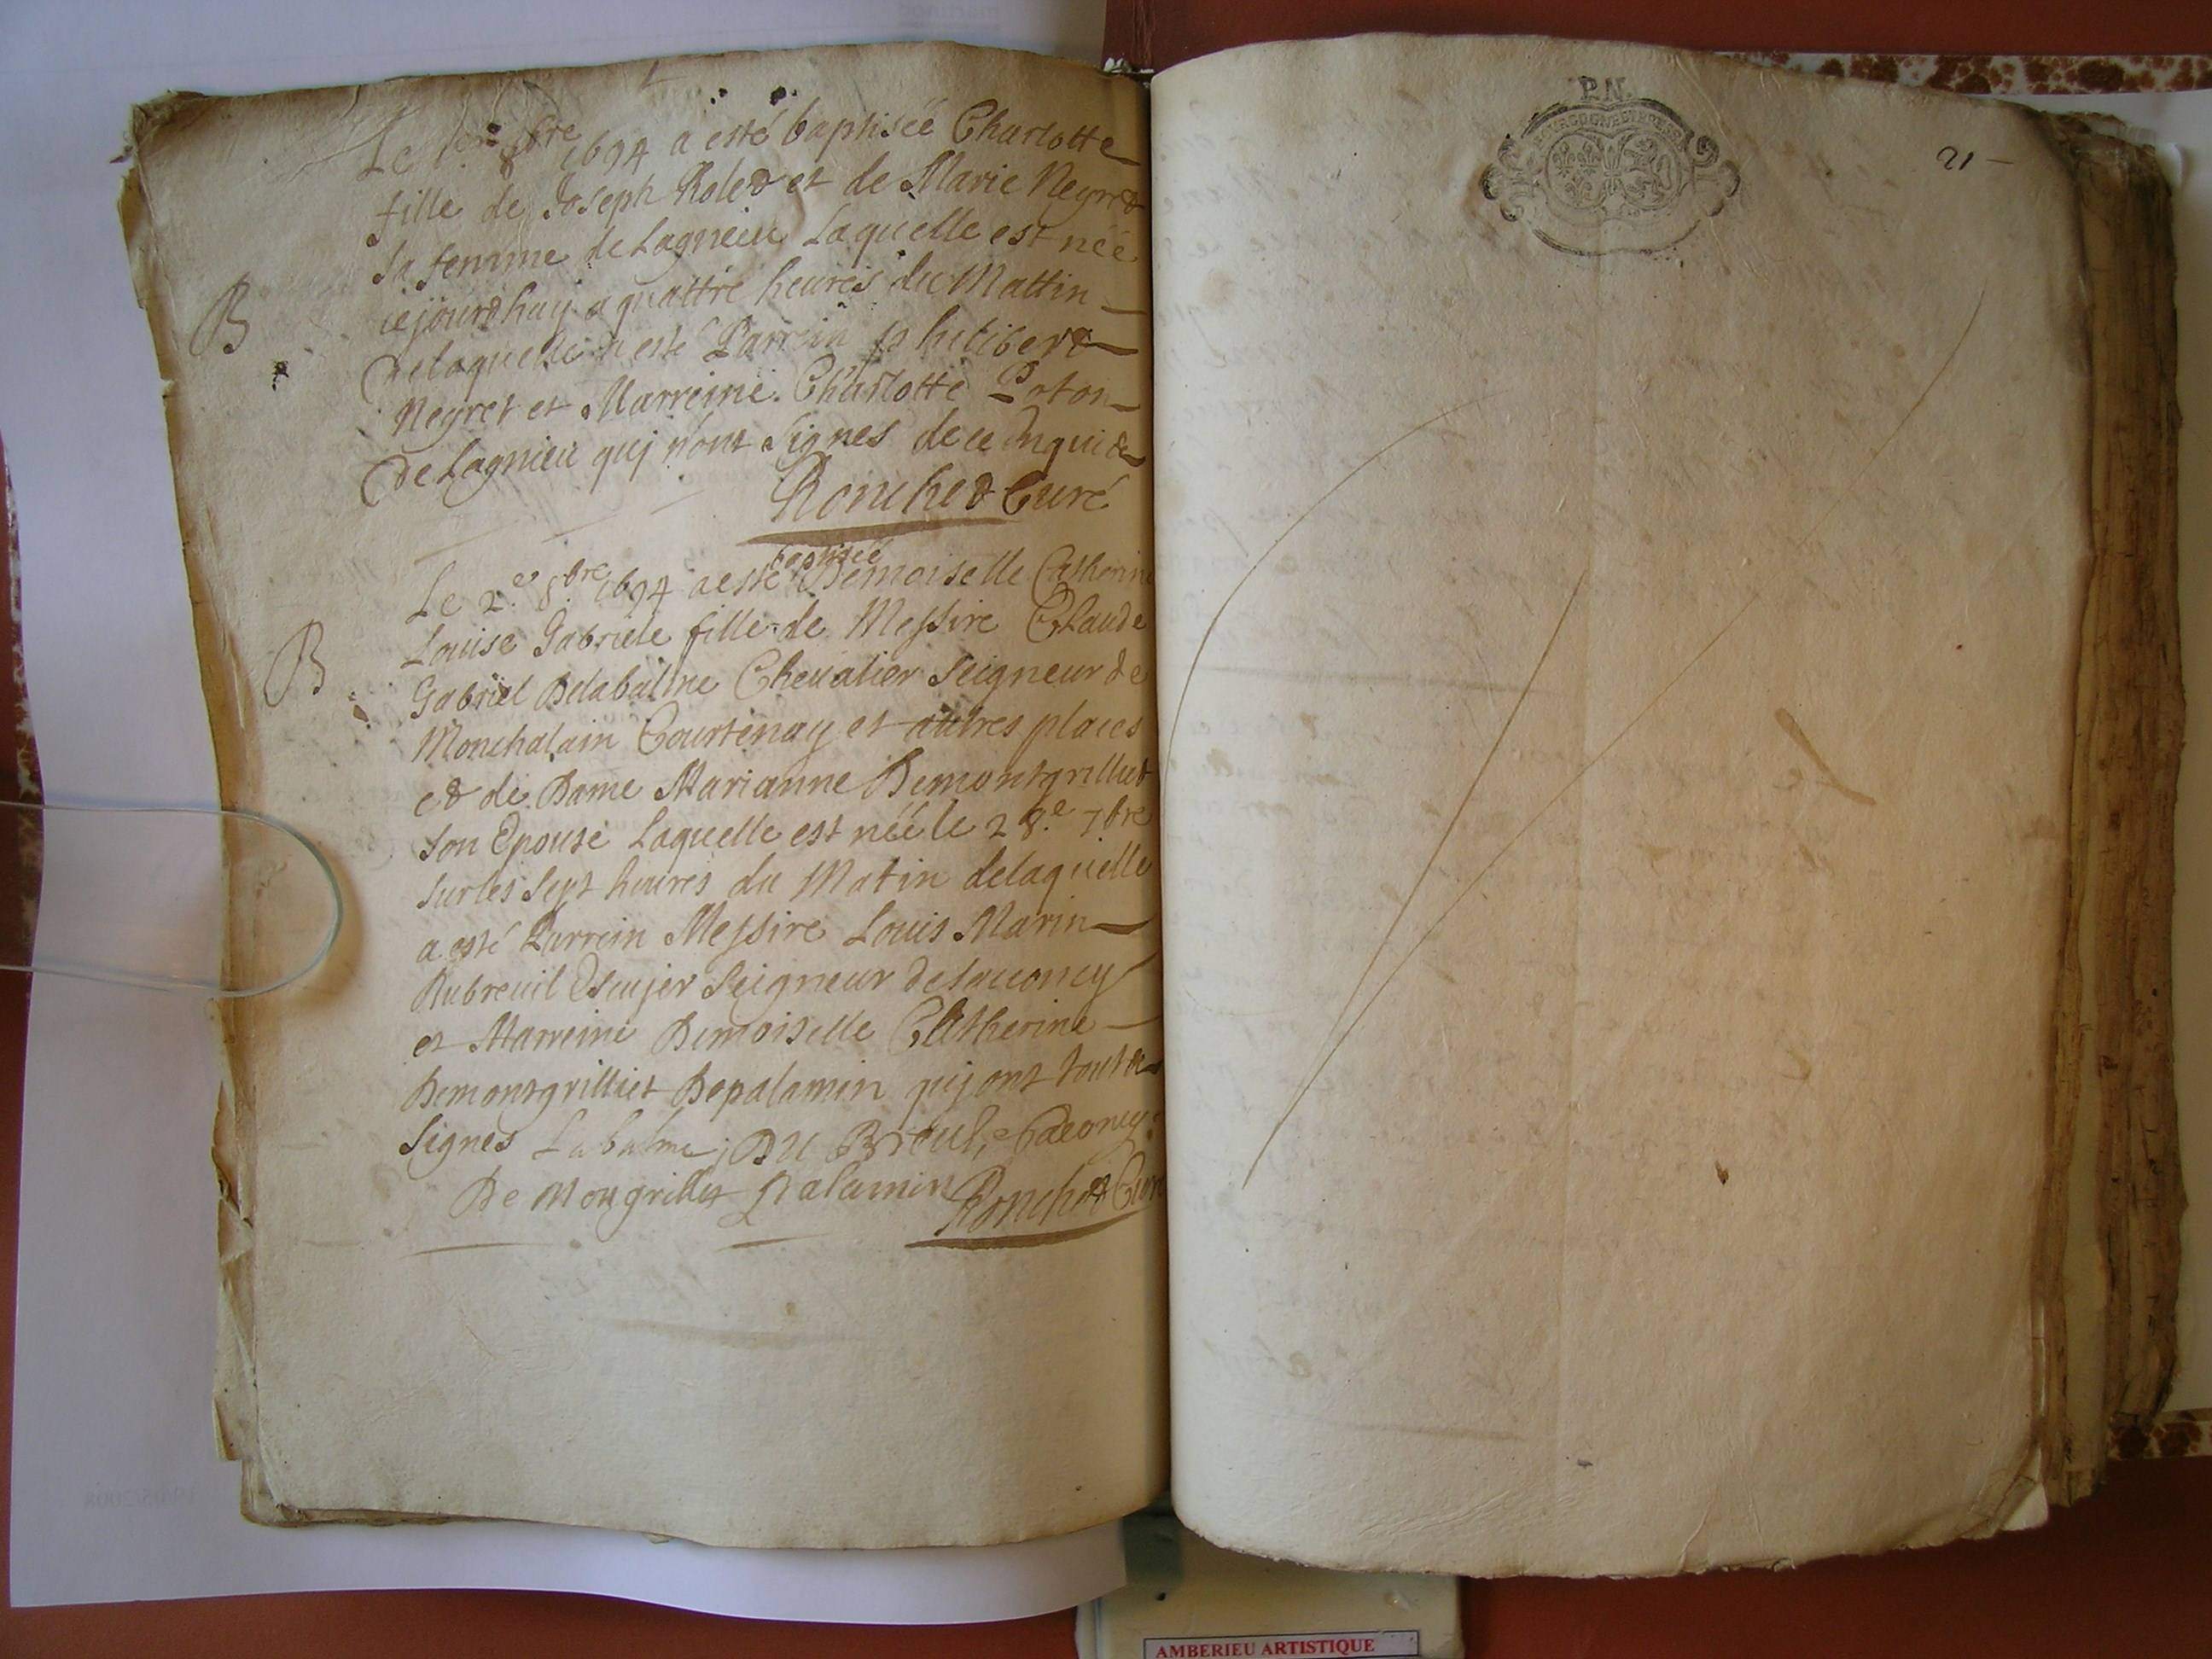 Le 1er 8bre 1694 a esté baptiséé Charlotte
fille de Joseph Roled et de Marie Neyred
sa femme de Lagnieu Laquelle est néé
cejourdhuy a quattre heures du Mattin
de laquelle a esté Parrein philiberd
Neyret et Marreine Charlotte Poton
de Lagnieu quj n'ont signes de ce Enquid
Ronched Curé
B
Le 2.e 8.bre 1694 a esté baptiséé Demoiselle Catherine
Louise Gabriele fille de Messire Claude
Gabriel Delabalme Cheualier Seigneur de
Monchalain Courtenay et autres places
ed de Dame Marianne Demontgrilliet
son Epouse Laquelle est néé le 28.e 7bre
sur les sept heures du Matin delaquelle
a esté Parrein Messire Louis Marin
Dubreuil Escujer Seigneur de Sacconey
et Marreine Demoiselle Catherine
Demontgrilliet Depalamin quj ont
signes Labalme, Du Breul, Saconey
De Mongrillet Palamin Ronched Curé
B
P.N.
21
AMBERIEU ARTISTIQUE